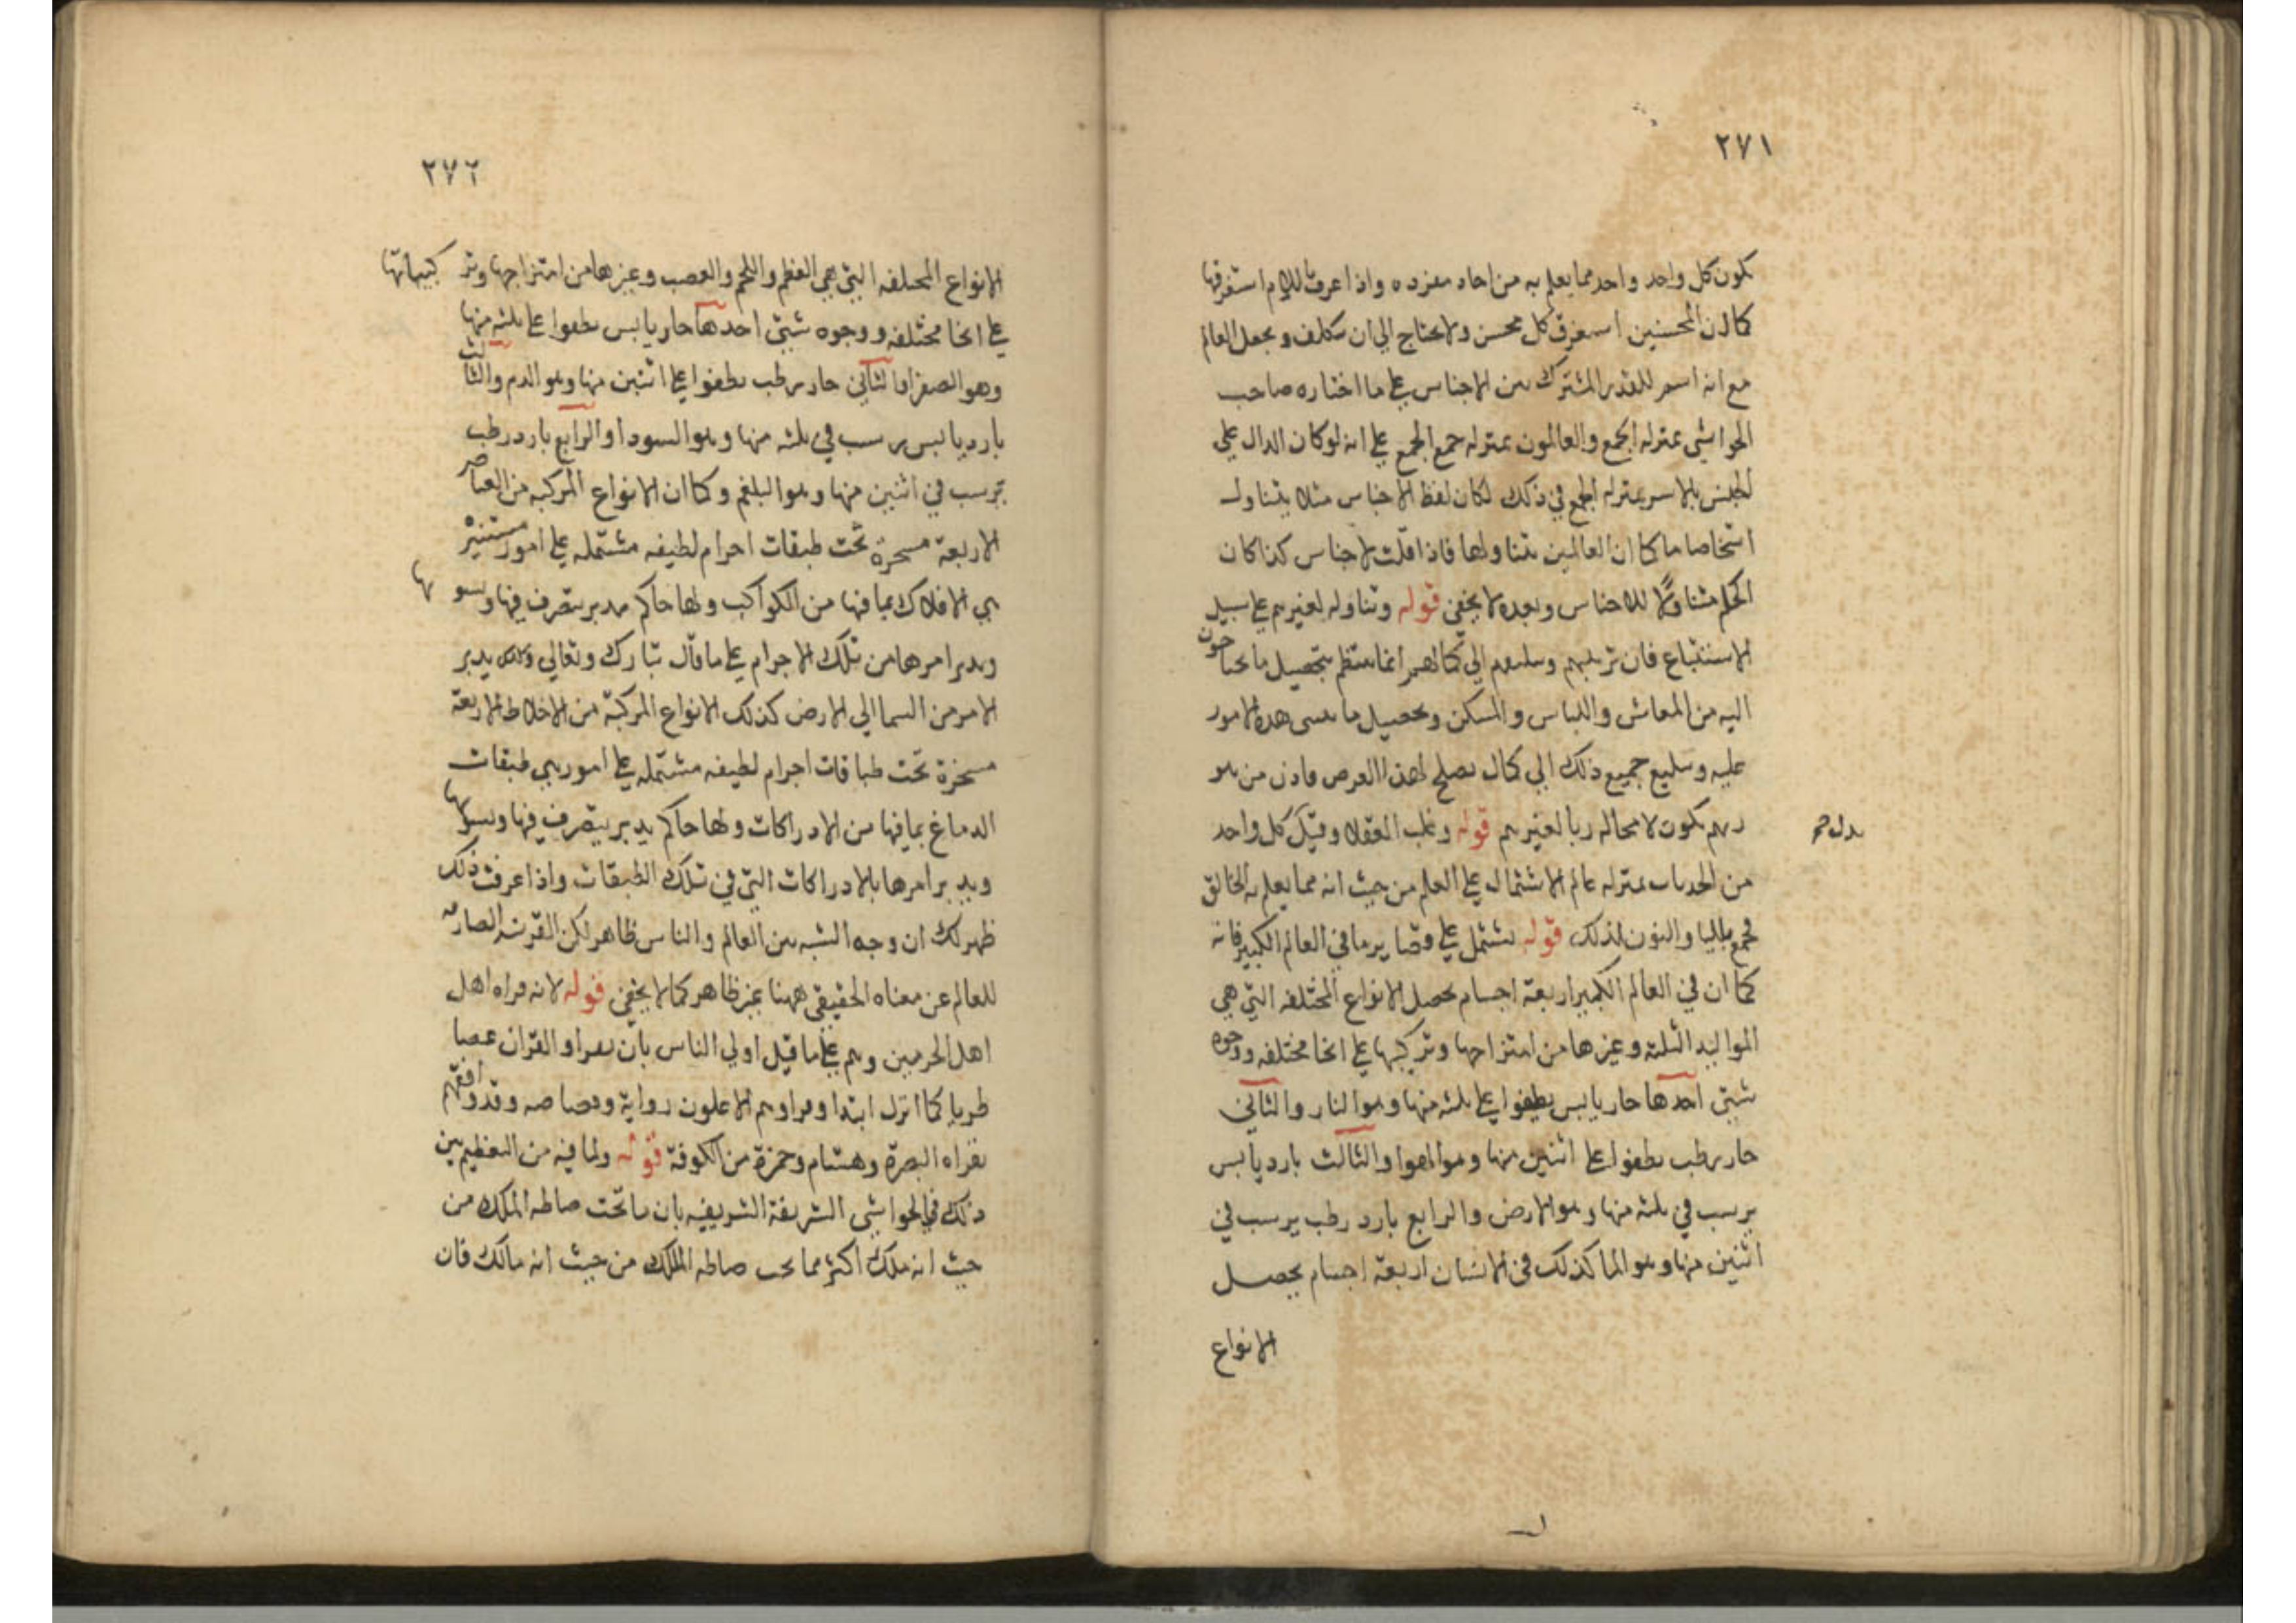 ٢٧١
يكون كل واحد واحد مما يعلم به من احاد مفرده واذا عرف للام استغرقها
كما ان المحسنين استغرق كل محسن ولا يحتاج الي ان يتكلف ويجعل العالم
مع انه اسم للقدر المشترك بين الاجناس علي ما اختاره صاحب
الحواشي بمنزله الجمع والعالمون بمنزله جمع الجمع علي انه لو كان الدال علي
الجنس بالاسر بمنزله الجمع في ذلك لكان لفظ الاجناس مثلا يتناول
اشخاصا ما كما ان العالمين يتناولها فاذا قلت الاجناس كذا كان
الحكم متناولًا للاجناس وبعده لا يخفي قوله وتناوله لغيرهم علي سبيل
الاستتباع فان تربيتهم وتبليغهم الي كمالهم انما ينتظم بتحصيل ما يحتاجون
اليه من المعاش واللباس والمسكن وتحصيل ما يبتنى هده الامور
عليه وتبليغ جميع ذلك الي كمال يصلح لهذا الغرض فاذن من هو
ربهم يكون لا محاله ربا لغيرهم قوله وغلب العقلا وقيل كل واحد
من بمنزله عالم الاشتمال علي العلم من حيث انه مما يعلم به الخالق
فجمع باليا والنون لذلك قوله يشتمل علي نظاير ما في العالم الكبير فانه
كما ان في العالم الكبير اربعة اجسام يحصل الانواع المختلفه التي هي
المواليد الثلثه وغيرها من امتزاجها وتركيبها علي انحا مختلفه ووجوه
شتي احدها حار يابس يطفوا علي ثلثه منها وهو النار والثاني
حار رطب يطفوا علي اثنين منها وهو الهوا والثالث بارد يابس
يرسب في ثلثه منها وهو الارض والرابع بارد رطب يرسب في
اثنين منها وهو الما كذلك في الانسان اربعة اجسام يحصل
الانواع
٢٧٢
الانواع المختلفه التي هي العظم واللحم والعصب وغيرها من امتزاجها وتركيباتها
علي انحا مختلفه ووجوه شتي احدها حار يابس يطفوا علي ثلثه منها
وهو الصفرا والثاني حار رطب يطفوا علي اثنين منها وهو الدم والثالث
بارد يابس يرسب في ثلثه منها وهو السودا والرابع بارد رطب
يرسب في اثنين منها وهو البلغم وكما ان الانواع المركبه من العناصر
الاربعة مسخرة تحت طبقات اجرام لطيفه مشتمله علي امور مستنيرة
هي الافلاك بما فيها من الكواكب ولها حاكم مدبر يتصرف فيها ويسويها
ويدبر امرها من تلك الاجرام علي ما قال تبارك وتعالي يدبر
الامر من السما الي الارض كذلك الانواع المركبة من الاخلاط الاربعة
مسخرة تحت طباقات اجرام لطيفه مشتمله علي امور هي طبقات
الدماغ بما فيها من الادراكات ولها حاكم يدبر يتصرف فيها ويسويها
ويدبر امرها بالادراكات التي في تلك الطبقات واذا عرفت ذلك
ظهر لك ان وجه الشبه بين العالم والناس ظاهر لكن القرينه الصارفه
للعالم عن معناه الحقيقي ههنا غير ظاهر كما لا يخفي قوله لانه قراه اهل
اهل الحرمين وهم علي ما قيل اولي الناس بان يقراوا القران غضا
طريا كما انزل ابتدا وقراوهم الاعلون رواية وفصاحه وقد وافقهم
بقراه البصرة وهشام وحمزة من الكوفة قوله ولما فيه من التعظيم بين
ذلك في الحواشي الشريفة الشريفيه بان ما تحت حاطه الملك من
حيث انه ملك اكثر مما تحت حاطه الملك من حيث انه مالك فان